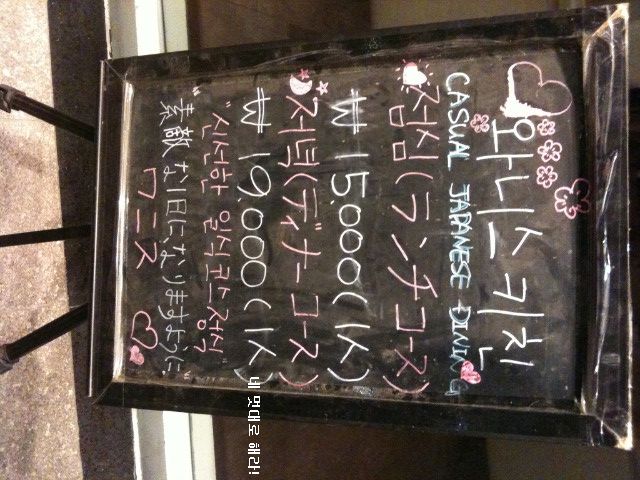 와니스 키친
CASUAL JAPANESE DINING
점심(ランチコース)
₩ 15,000(1人)
저녁(ディナーコース)
₩ 19,000(1人)
"신선한 일식코스정식"
素敵な1日になりますように。
ワニス
네 멋대로 해라!